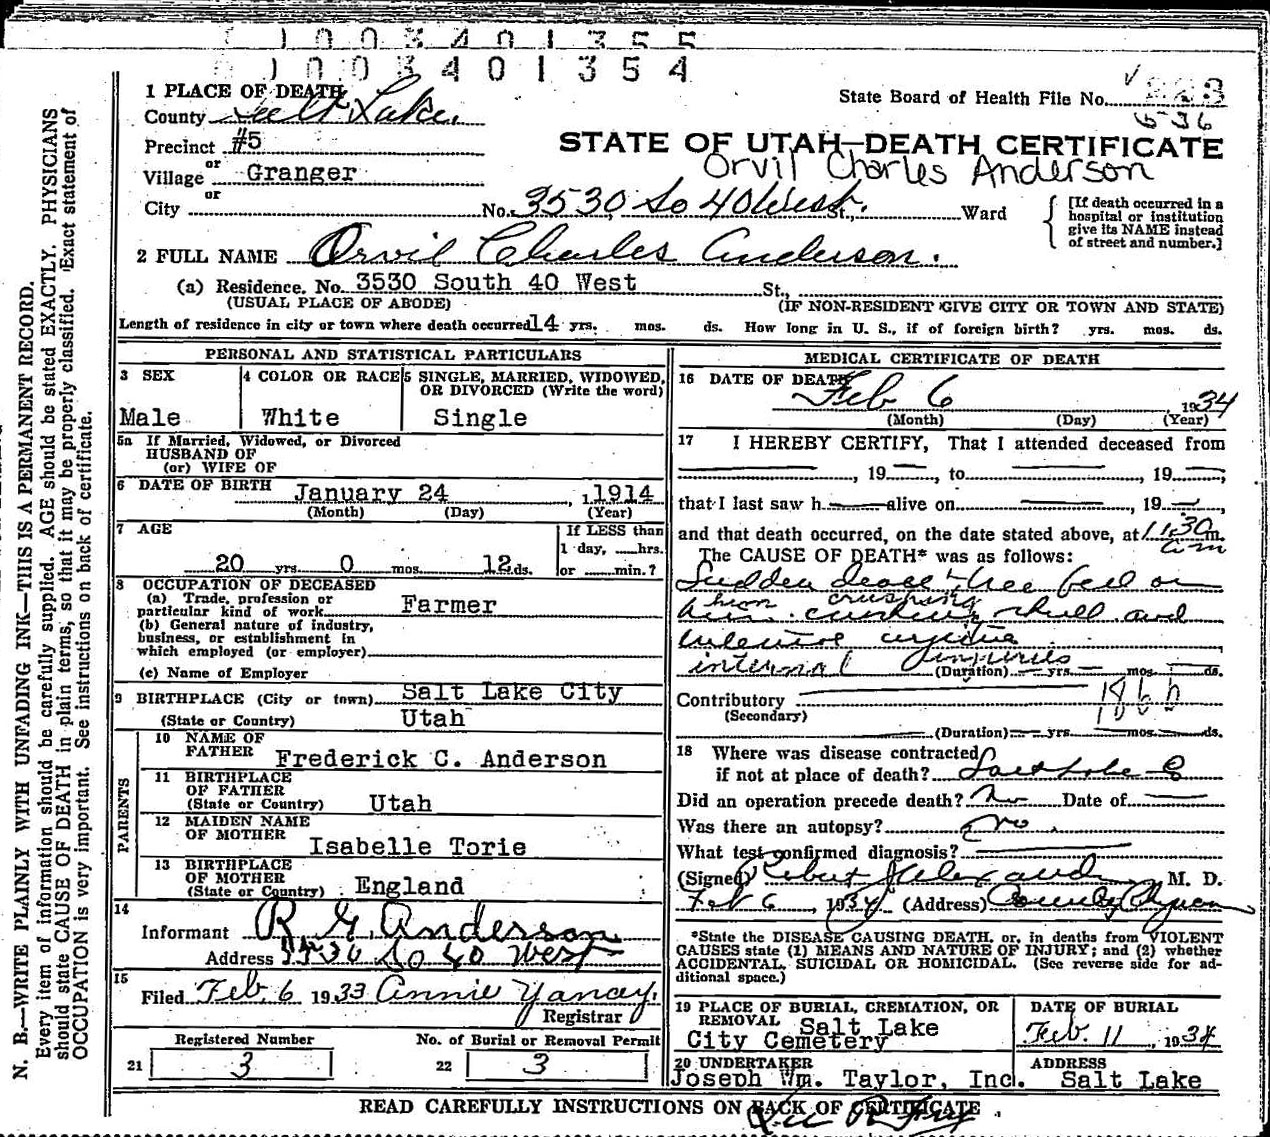 1 0 0 3 4 0 1 3 5 5
1 0 0 3 4 0 1 3 5 4
1 PLACE OF DEATH
County Salt Lake.
Precinct #5
or
Village Granger
or
City No. 3530 So 40 West. St., Ward
State Board of Health File No.
536
STATE OF UTAH—DEATH CERTIFICATE
Orvil Charles Anderson
[If death occurred in a
hospital or institution
give its NAME instead
of street and number.]
2 FULL NAME Orvil Charles Anderson.
(a) Residence. No. 3530 South 40 West St.,
(USUAL PLACE OF ABODE) (IF NON-RESIDENT GIVE CITY OR TOWN AND STATE)
Length of residence in city or town where death occurred 14 yrs. mos. ds. How long in U. S., if of foreign birth? yrs. mos. ds.
PERSONAL AND STATISTICAL PARTICULARS
3 SEX
Male
4 COLOR OR RACE
White
5 SINGLE, MARRIED, WIDOWED,
OR DIVORCED (Write the word)
Single
5a If Married, Widowed, or Divorced
HUSBAND OF
(or) WIFE OF
6 DATE OF BIRTH January 24 , 1914
(Month) (Day) (Year)
7 AGE
20 yrs. 0 mos. 12 ds.
If LESS than
1 day, hrs.
or min.?
8 OCCUPATION OF DECEASED
(a) Trade, profession or
particular kind of work Farmer
(b) General nature of industry,
business, or establishment in
which employed (or employer)
(c) Name of Employer
9 BIRTHPLACE (City or town) Salt Lake City
(State or Country) Utah
PARENTS
10 NAME OF
FATHER Frederick C. Anderson
11 BIRTHPLACE
OF FATHER
(State or Country) Utah
12 MAIDEN NAME
OF MOTHER
Isabelle Torie
13 BIRTHPLACE
OF MOTHER
(State or Country) England
14
Informant R G Anderson
Address So 40 West
15
Filed Feb. 6 1933 Annie Yanay.
Registrar
Registered Number
21 3
No. of Burial or Removal Permit
22 3
MEDICAL CERTIFICATE OF DEATH
16 DATE OF DEATH
Feb 6 1934
(Month) (Day) (Year)
17 I HEREBY CERTIFY, That I attended deceased from
, 19 , to , 19 ,
that I last saw h alive on , 19 ,
and that death occurred, on the date stated above, at 11:30 m.
am
The CAUSE OF DEATH* was as follows:
Sudden death tree fell on
him crushing
him crushing skull and
internal injuries
(Duration) yrs mos ds.
Contributory
(Secondary)
186 b
(Duration) yrs mos ds.
18 Where was disease contracted
if not at place of death? Salt Lake
Did an operation precede death? No Date of
Was there an autopsy? No
What test confirmed diagnosis?
(Signed) Robert Alexander M. D.
Feb 6, 1934 (Address) County
*State the DISEASE CAUSING DEATH, or, in deaths from VIOLENT
CAUSES state (1) MEANS AND NATURE OF INJURY; and (2) whether
ACCIDENTAL, SUICIDAL OR HOMICIDAL. (See reverse side for ad-
ditional space.)
19 PLACE OF BURIAL, CREMATION, OR
REMOVAL Salt Lake
City Cemetery
DATE OF BURIAL
Feb. 11, 1934
20 UNDERTAKER
Joseph Wm. Taylor, Inc.
ADDRESS
Salt Lake
READ CAREFULLY INSTRUCTIONS ON BACK OF CERTIFICATE
N. B.—WRITE PLAINLY WITH UNFADING INK—THIS IS A PERMANENT RECORD.
Every item of information should be carefully supplied. AGE should be stated EXACTLY. PHYSICIANS
should state CAUSE OF DEATH in plain terms, so that it may be properly classified. Exact statement of
OCCUPATION is very important. See instructions on back of certificate.